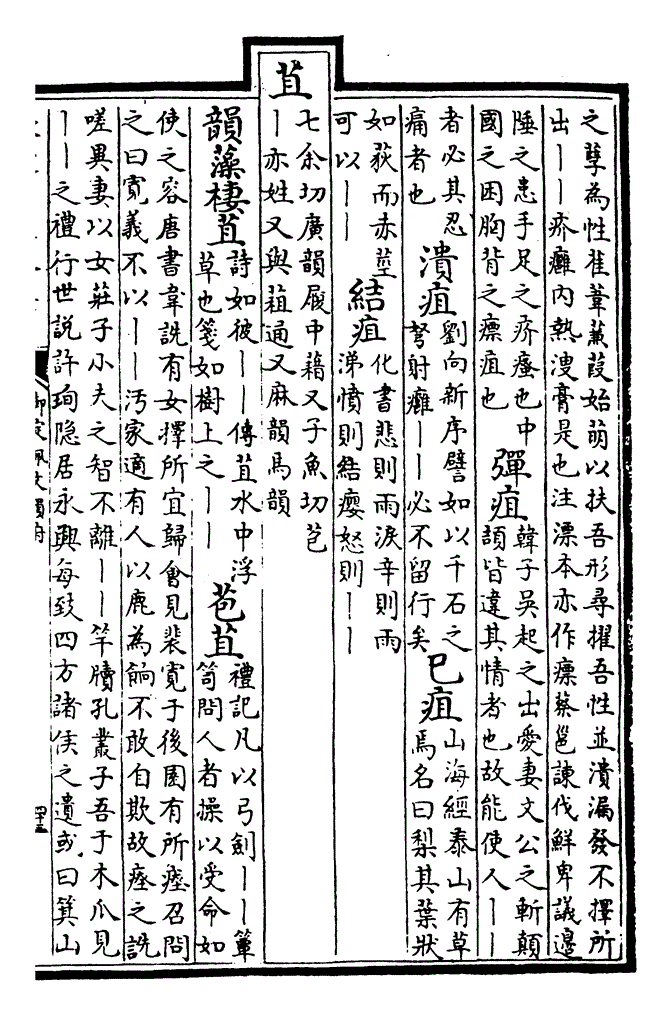 之孽為性萑葦蒹葭始萌以扶吾形尋擢吾性並潰漏發不擇所
出丨丨疥癰內熱溲膏是也注漂本亦作瘭蔡邕諫伐鮮卑議邊
陲之患手足之疥瘙也中
國之困胸背之瘭疽也
彈疽
韓子吳起之出愛妻文公之斬顛
頡皆違其情者也故能使人丨丨
者必其忍
痛者也
潰疽
劉向新序譬如以千石之
弩射癰丨丨必不留行矣
巳疽
山海經泰山有草
焉名曰梨其葉狀
如荻而赤莖
可以丨丨
結疽
化書悲則雨淚辛則雨
涕憤則結癭怒則丨丨
苴
七余切廣韻履中藉又子魚切苞
丨亦姓又與葅通又麻韻馬韻
韻藻棲苴
詩如彼丨丨傳苴水中浮
草也箋如樹上之丨丨
苞苴
禮記凡以弓劍丨丨簞
笥問人者操以受命如
使之容唐書韋詵有女擇所宜歸會見裴寛于後園有所瘞召問
之曰寛義不以丨丨汚家適有人以鹿為餉不敢自欺故瘞之詵
嗟異妻以女莊子小夫之智不離丨丨竿牘孔叢子吾于木瓜見
丨丨之禮行世說許珣隐居永興每致四方諸侯之遺或曰箕山
御定佩文韻府